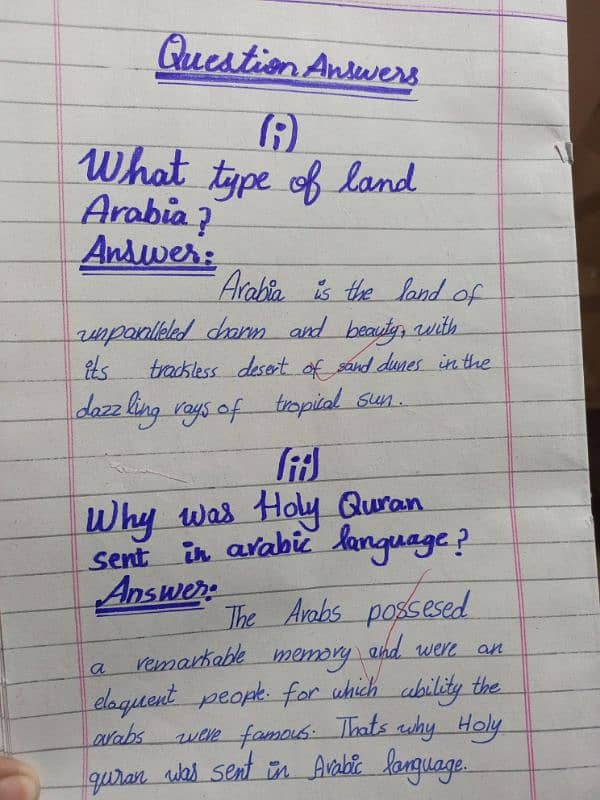 Question Answers
(i)
What type of land
Arabia?
Answer:
Arabia is the land of
unparalleled charm and beauty, with
its trackless desert of sand dunes in the
dazzling rays of tropical sun.
(ii)
Why was Holy Quran
sent in arabic language?
Answer:
The Arabs possesed
a remarkable memory and were an
elaquent people. for which ability the
arabs were famous. Thats why Holy
quran was sent in Arabic language.